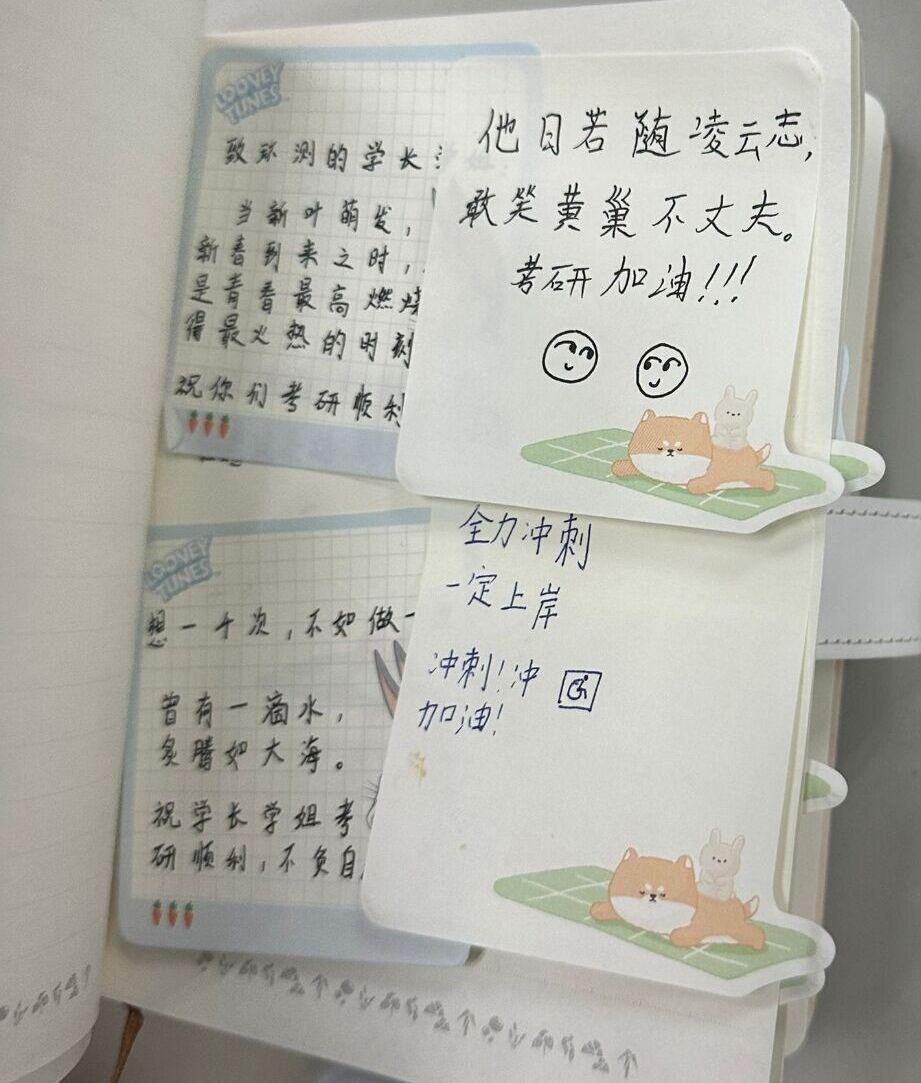 LOONEY
TUNES
致环测的学长
当新叶萌发，
新春到来之时，
是青春最高燃
得最火热的时刻
祝你们考研顺利
他日若随凌云志，
敢笑黄巢不丈夫。
考研加油！！！
LOONEY
TUNES
想一千次，不如做一
曾有一滴水，
炙腾如大海。
祝学长学姐考
研顺利，不负自
全力冲刺
一定上岸
冲刺！冲
加油！